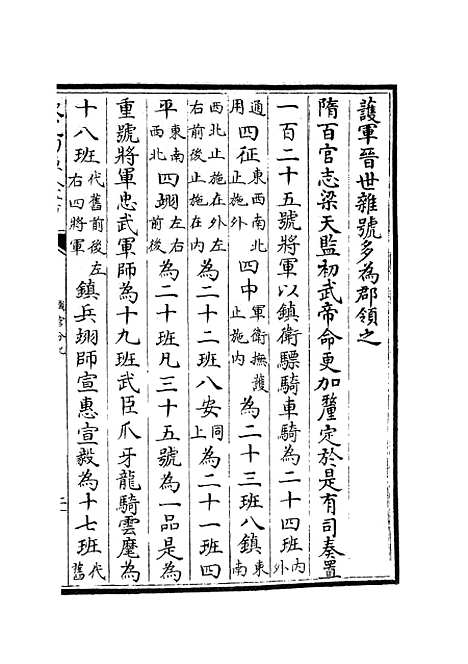 護軍晉世雜號多為郡領之
隋百官志梁天監初武帝命更加釐定於是有司奏置
一百二十五號將軍以鎮衛驃騎車騎為二十四班內外
通用四征東西南北止施外四中軍衛撫護止施內為二十三班八鎮東南
西北止施在外左右前後止施在內為二十二班八安同上為二十一班四
平東南西北四翊左右前後為二十班凡三十五號為一品是為
重號將軍忠武軍師為十九班武臣爪牙龍騎雲麾為
十八班代舊前後左右四將軍鎮兵翊師宣惠宣毅為十七班代舊